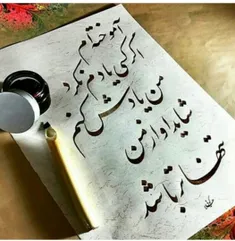 آموختم
اگر کسی یادم نکرد
من یادش کنم
شاید او از من
تنها تر باشد